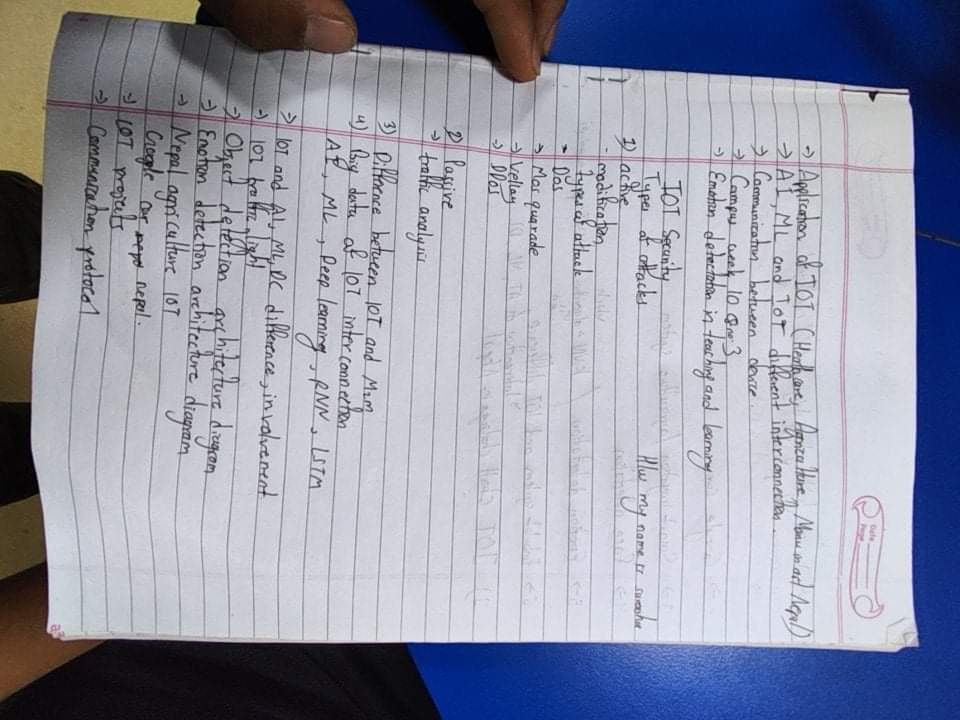 Date
Page
-) Application of IOT (Healthcare, Agriculture, Nepal)
-) AI, ML and IOT different interconnection.
-) Communication between device.
-) Campus week 10 3
-) Emotion detectation in teaching and learning
IOT Security
Types of attacks H/w my name is
1) active
. modification
types of attack
• DOS
-) Masquarade
-)
-) DDOS
2) Passive
-) traffic analysis
3) Difference between IOT and M2M
4) Big data of IOT interconnection
AI, ML, Deep learning, RNN, LSTM
-) IOT and AI, ML, difference, involvement
-) IOT traffic light
-) Object detection architecture diagram
-) Emotion detection architecture diagram
-) Nepal agriculture IOT
Google car nepal.
-) IOT projects
-) Communication protocol